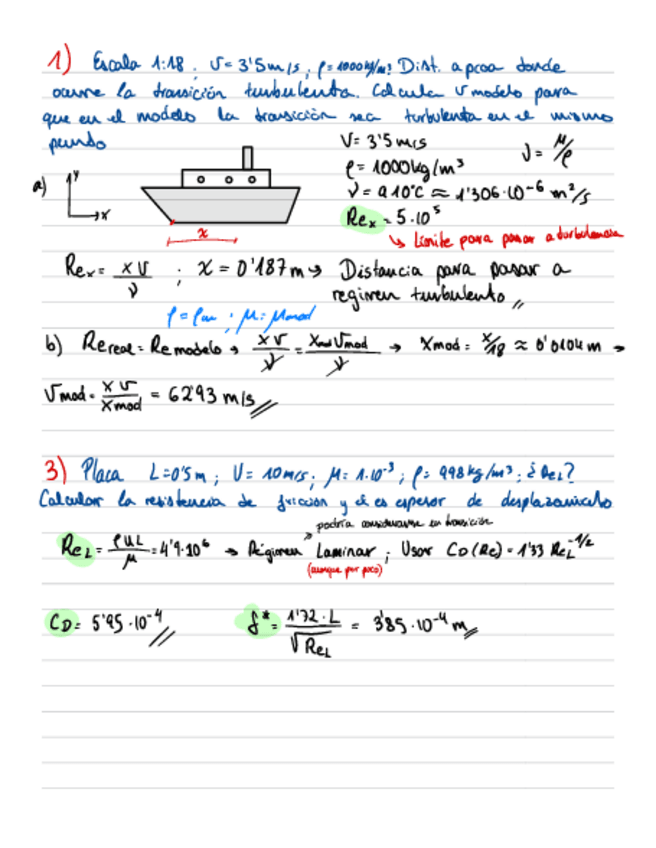 1) Escala 1:18 ; V = 3'5 m/s ; ρ = 1000 kg/m³ Dist. a proa donde
ocurre la transición turbulenta. Calcula v modelo para
que en el modelo la transición sea turbulenta en el mismo
punto
V = 3'5 m/s
ν = μ/ρ
ρ = 1000 kg/m³
a) y
x
ν = a 10°C ≈ 1'306·10⁻⁶ m²/s
Reₓ = 5·10⁵
x
↳ Límite para pasar a turbulencia
Reₓ = xV/ν ; x = 0'187 m → Distancia para pasar a
regimen turbulento //
ρ = ; μ = μmod
b) Re real = Re modelo → xV/ν = Xmod Vmod/ν → Xmod = x/18 ≈ 0'0104 m →
Vmod = xV/Xmod = 62'93 m/s //
3) Placa L = 0'5 m ; U = 10 m/s ; μ = 1·10⁻³ ; ρ = 998 kg/m³ ; ¿ReL?
Calcular la resistencia de fricción y el espesor de desplazamiento
podría considerarse en transición
ReL = ρUL/μ = 4'9·10⁶ → Régimen Laminar ; Usar CD(Re) = 1'33 ReL^-1/2
(aunque por poco)
CD = 5'95·10⁻⁴ //
δ* = 1'72·L/√ReL = 3'85·10⁻⁴ m //